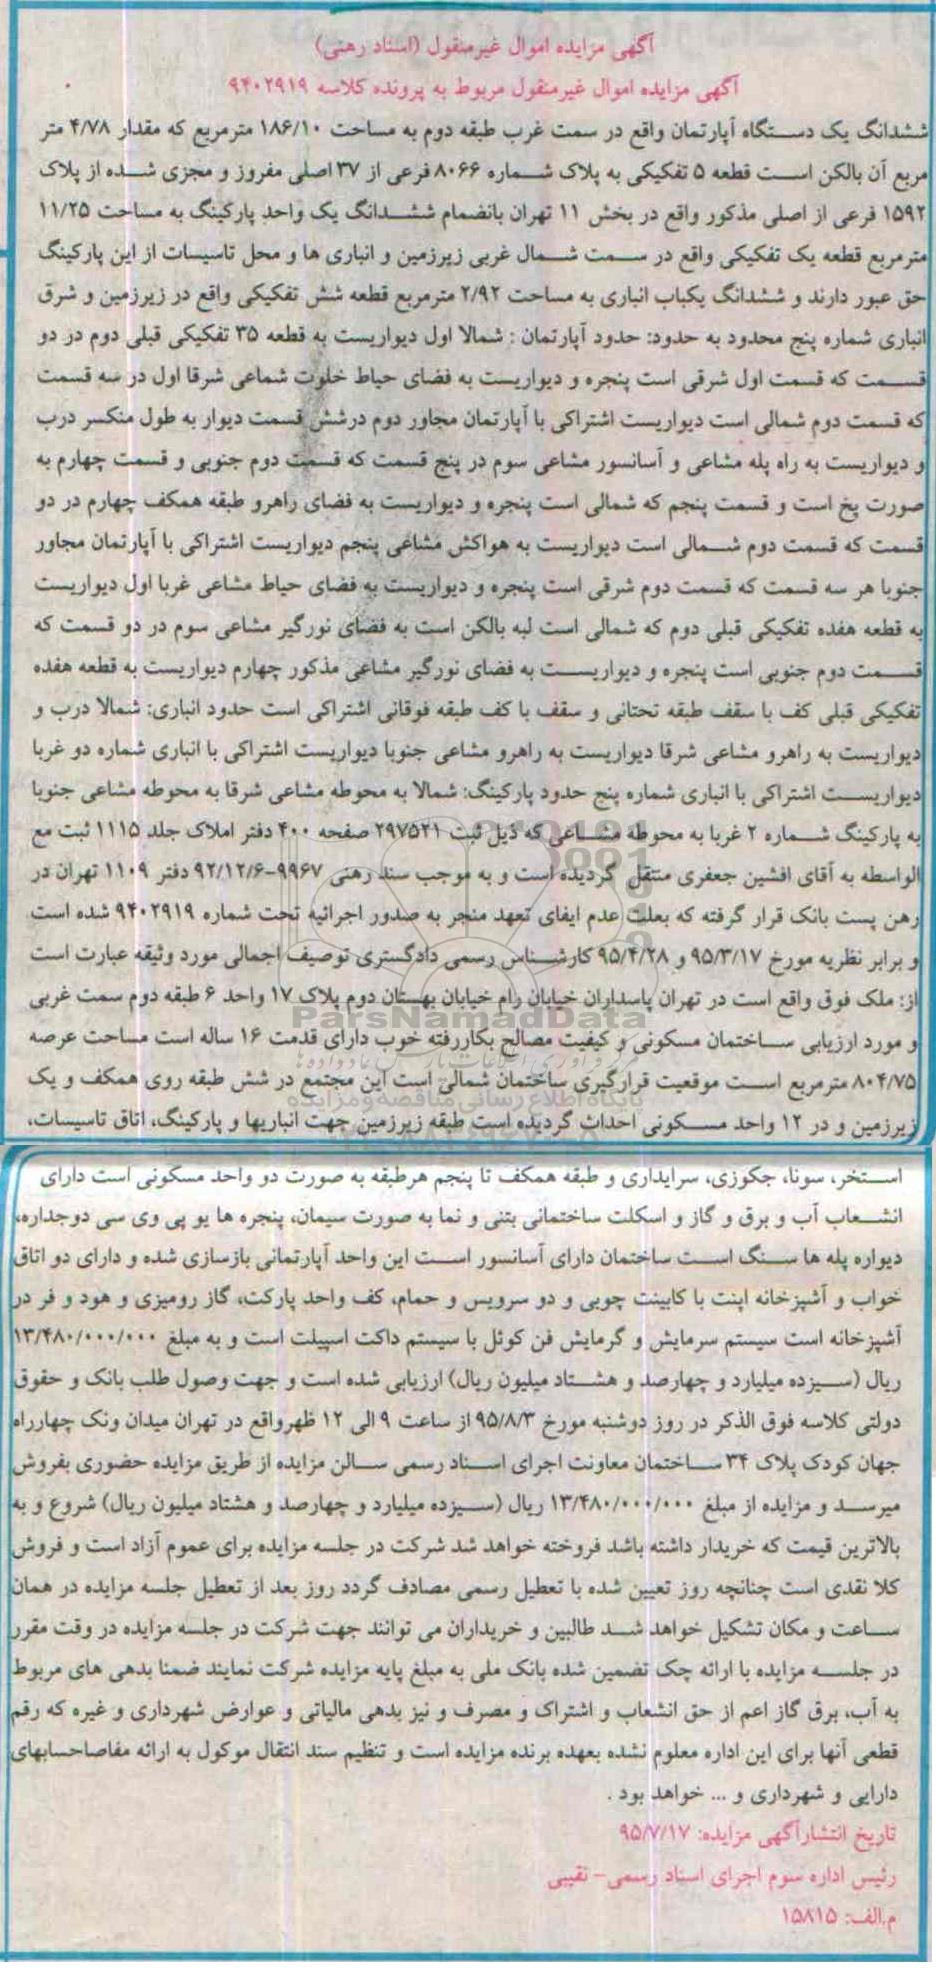 آگهی مزایده اموال غیرمنقول (اسناد رهنی)
آگهی مزایده اموال غیرمنقول مربوط به پرونده کلاسه ۹۴۰۲۹۱۹
ششدانگ یک دستگاه آپارتمان واقع در سمت غرب طبقه دوم به مساحت ۱۸۶/۱۰ مترمربع که مقدار ۴/۷۸ متر
مربع آن بالکن است قطعه ۵ تفکیکی به پلاک شماره ۸۰۶۶ فرعی از ۳۷ اصلی مفروز و مجزی شده از پلاک
۱۵۹۲ فرعی از اصلی مذکور واقع در بخش ۱۱ تهران بانضمام ششدانگ یک واحد پارکینگ به مساحت ۱۱/۲۵
مترمربع قطعه یک تفکیکی واقع در سمت شمال غربی زیرزمین و انباری ها و محل تاسیسات از این پارکینگ
حق عبور دارند و ششدانگ یکباب انباری به مساحت ۲/۹۲ مترمربع قطعه شش تفکیکی واقع در زیرزمین و شرق
انباری شماره پنج محدود به حدود: حدود آپارتمان : شمالا اول دیواریست به قطعه ۳۵ تفکیکی قبلی دوم در دو
قسمت که قسمت اول شرقی است پنجره و دیواریست به فضای حیاط خلوت شماعی شرقا اول در سه قسمت
که قسمت دوم شمالی است دیواریست اشتراکی با آپارتمان مجاور دوم درشش قسمت دیوار به طول منکسر درب
و دیواریست به راه پله مشاعی و آسانسور مشاعی سوم در پنج قسمت که قسمت دوم جنوبی و قسمت چهارم به
صورت پخ است و قسمت پنجم که شمالی است پنجره و دیواریست به فضای راهرو طبقه همکف چهارم در دو
قسمت که قسمت دوم شمالی است دیواریست به هواکش مشاعی پنجم دیواریست اشتراکی با آپارتمان مجاور
جنوبا هر سه قسمت که قسمت دوم شرقی است پنجره و دیواریست به فضای حیاط مشاعی غربا اول دیواریست
به قطعه هفده تفکیکی قبلی دوم که شمالی است لبه بالکن است به فضای نورگیر مشاعی سوم در دو قسمت که
قسمت دوم جنوبی است پنجره و دیواریست به فضای نورگیر مشاعی مذکور چهارم دیواریست به قطعه هفده
تفکیکی قبلی کف با سقف طبقه تحتانی و سقف با کف طبقه فوقانی اشتراکی است حدود انباری: شمالا درب و
دیواریست به راهرو مشاعی شرقا دیواریست به راهرو مشاعی جنوبا دیواریست اشتراکی با انباری شماره دو غربا
دیواریست اشتراکی با انباری شماره پنج حدود پارکینگ: شمالا به محوطه مشاعی شرقا به محوطه مشاعی جنوبا
به پارکینگ شماره ۲ غربا به محوطه مشاعی که ذیل ثبت ۲۹۷۵۲۱ صفحه ۴۰۰ دفتر املاک جلد ۱۱۱۵ ثبت مع
الواسطه به آقای افشین جعفری منتقل گردیده است و به موجب سند رهنی ۹۹۶۷-۹۲/۱۲/۶ دفتر ۱۱۰۹ تهران در
رهن پست بانک قرار گرفته که بعلت عدم ایفای تعهد منجر به صدور اجرائیه تحت شماره ۹۴۰۲۹۱۹ شده است
و برابر نظریه مورخ ۹۵/۳/۱۷ و ۹۵/۴/۲۸ کارشناس رسمی دادگستری توصیف اجمالی مورد وثیقه عبارت است
از: ملک فوق واقع است در تهران پاسداران خیابان رام خیابان بهستان دوم پلاک ۱۷ واحد ۶ طبقه دوم سمت غربی
و مورد ارزیابی ساختمان مسکونی و کیفیت مصالح بکاررفته خوب دارای قدمت ۱۶ ساله است مساحت عرصه
۸۰۴/۷۵ مترمربع است موقعیت قرارگیری ساختمان شمالی است این مجتمع در شش طبقه روی همکف و یک
زیرزمین و در ۱۲ واحد مسکونی احداث گردیده است طبقه زیرزمین جهت انباریها و پارکینگ، اتاق تاسیسات،
استخر، سونا، جکوزی، سرایداری و طبقه همکف تا پنجم هرطبقه به صورت دو واحد مسکونی است دارای
انشعاب آب و برق و گاز و اسکلت ساختمانی بتنی و نما به صورت سیمان، پنجره ها یو پی وی سی دوجداره،
دیواره پله ها سنگ است ساختمان دارای آسانسور است این واحد آپارتمانی بازسازی شده و دارای دو اتاق
خواب و آشپزخانه اپنت با کابینت چوبی و دو سرویس و حمام، کف واحد پارکت، گاز رومیزی و هود و فر در
آشپزخانه است سیستم سرمایش و گرمایش فن کوئل با سیستم داکت اسپیلت است و به مبلغ ۱۳/۴۸۰/۰۰۰/۰۰۰
ریال (سیزده میلیارد و چهارصد و هشتاد میلیون ریال) ارزیابی شده است و جهت وصول طلب بانک و حقوق
دولتی کلاسه فوق الذکر در روز دوشنبه مورخ ۹۵/۸/۳ از ساعت ۹ الی ۱۲ ظهرواقع در تهران میدان ونک چهارراه
جهان کودک پلاک ۳۴ ساختمان معاونت اجرای اسناد رسمی سالن مزایده از طریق مزایده حضوری بفروش
میرسد و مزایده از مبلغ ۱۳/۴۸۰/۰۰۰/۰۰۰ ریال (سیزده میلیارد و چهارصد و هشتاد میلیون ریال) شروع و به
بالاترین قیمت که خریدار داشته باشد فروخته خواهد شد شرکت در جلسه مزایده برای عموم آزاد است و فروش
کلا نقدی است چنانچه روز تعیین شده با تعطیل رسمی مصادف گردد روز بعد از تعطیل جلسه مزایده در همان
ساعت و مکان تشکیل خواهد شد طالبین و خریداران می توانند جهت شرکت در جلسه مزایده در وقت مقرر
در جلسه مزایده با ارائه چک تضمین شده بانک ملی به مبلغ پایه مزایده شرکت نمایند ضمنا بدهی های مربوط
به آب، برق گاز اعم از حق انشعاب و اشتراک و مصرف و نیز بدهی مالیاتی و عوارض شهرداری و غیره که رقم
قطعی آنها برای این اداره معلوم نشده بعهده برنده مزایده است و تنظیم سند انتقال موکول به ارائه مفاصاحسابهای
دارایی و شهرداری و ... خواهد بود .
تاریخ انتشارآگهی مزایده: ۹۵/۷/۱۷
رئیس اداره سوم اجرای اسناد رسمی- نقیبی
م.الف: ۱۵۸۱۵
ParsNamadData
پایگاه اطلاع رسانی مناقصه و مزایده